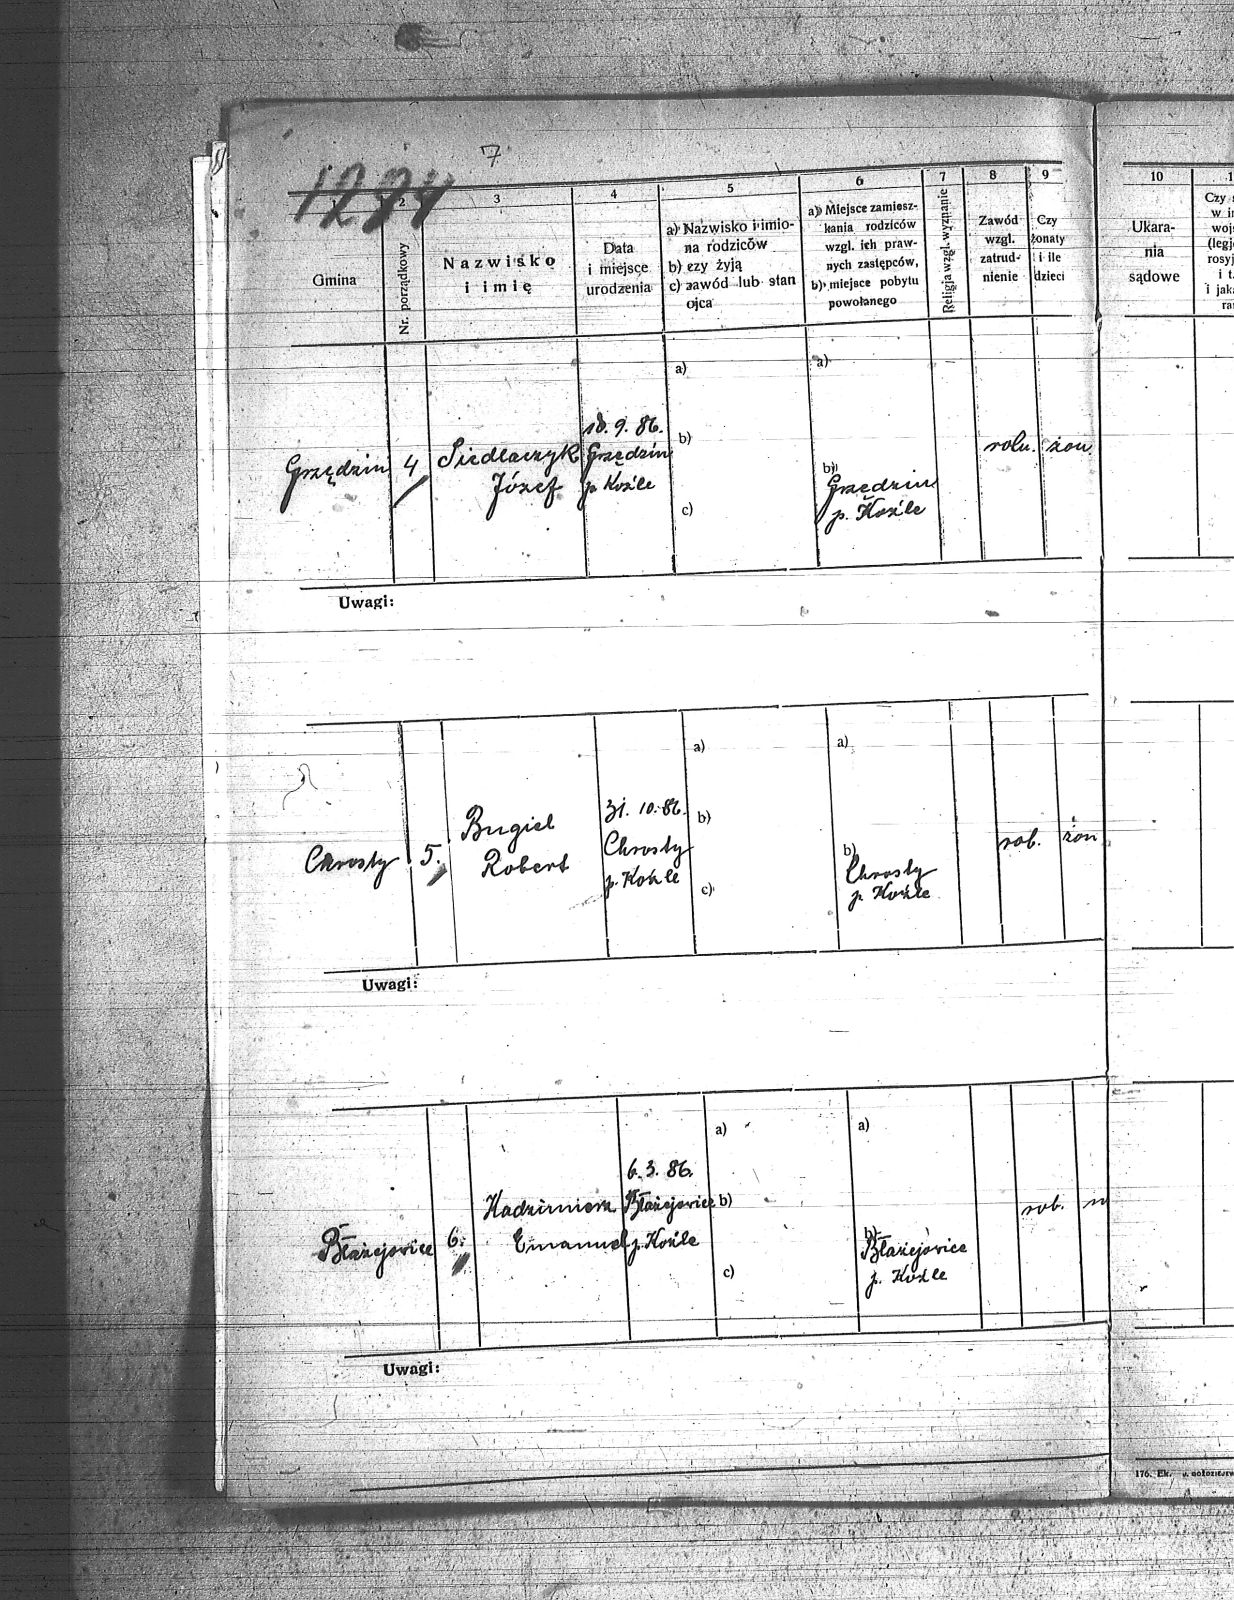 7
1274
1
2
3
4
5
6
7
8
9
10
Gmina
Nr. porządkowy
Nazwisko
i imię
Data
i miejsce
urodzenia
a) Nazwisko i imio-
na rodziców
b) czy żyją
c) zawód lub stan
ojca
a) Miejsce zamiesz-
kania rodziców
wzgl. ich praw-
nych zastępców,
b) miejsce pobytu
powołanego
Religja wzgl. wyznanie
Zawód
wzgl.
zatrud-
nienie
Czy
żonaty
i ile
dzieci
Ukara-
nia
sądowe
Czy
w
woj
(legj
rosyj
i t.
i jaka
ra
Grzędzin
4
Siedlaczyk
Józef
10. 9. 86.
Grzędzin
p. Koźle
a)
b)
c)
a)
b)
Grzędzin
p. Koźle
roln.
żon
Uwagi:
Chrosty
5.
Bugiel
Robert
31. 10. 86.
Chrosty
p. Koźle
a)
b)
c)
a)
b)
Chrosty
p. Koźle
rob.
żon
Uwagi:
Błażejowice
6.
Kadzimierz
Emanuel
6. 3. 86.
Błażejowice
p. Koźle
a)
b)
c)
a)
b)
Błażejowice
p. Koźle
rob.
Uwagi:
176. Ek.